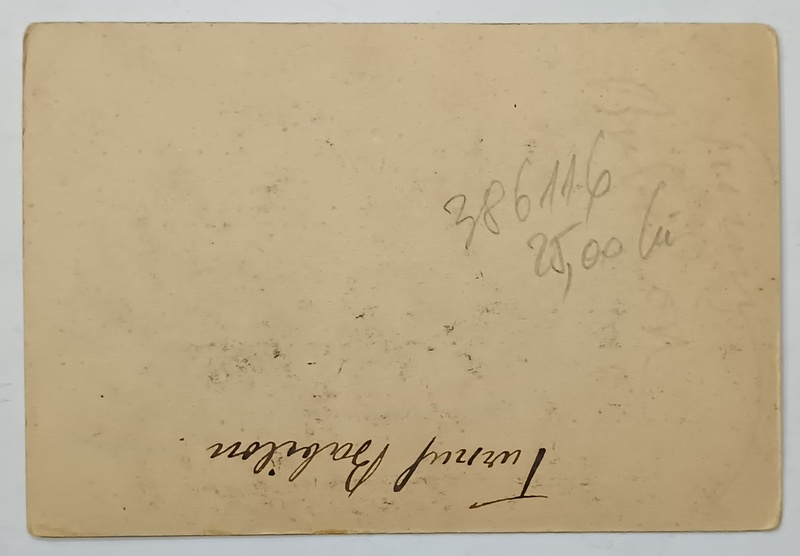 386116
25,00 lei
Turnul Babilon